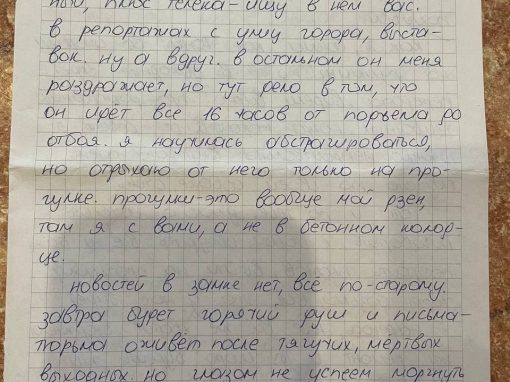 ный, плюс телека-ищу в нем вас.
в репортажах с улиц города, выста-
вок. ну а вдруг. в остальном он меня
раздражает, но тут дело в том, что
он идёт все 16 часов от подъема до
отбоя. я научилась абстрагироваться,
но отдыхаю от него только на про-
гулке. прогулки-это вообще мой дзен,
там я с вами, а не в бетонном колод-
це.
новостей в замке нет, всё по-старому.
завтра будет горячий душ и письма-
тюрьма оживёт после тягучих, мёртвых
выходных. но глазом не успеем моргнуть